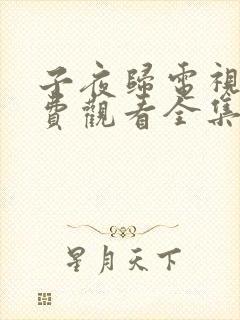 子夜歸電視
費觀看全集
星月天下